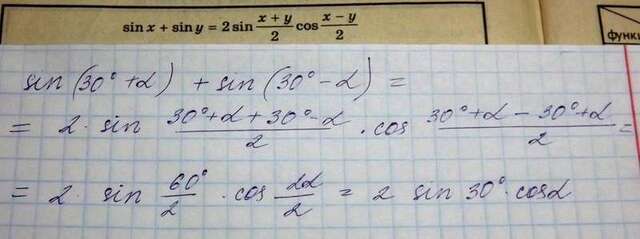 sin x + sin y = 2 sin (x + y)/2 cos (x − y)/2
функи
sin (30° + α) + sin (30° − α) =
= 2 · sin (30° + α + 30° − α)/2 · cos (30° + α − 30° + α)/2 =
= 2 · sin 60°/2 · cos 2α/2 = 2 sin 30° · cos α